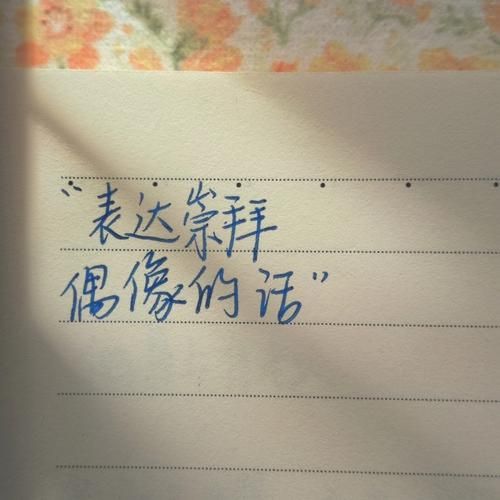 “表达崇拜
偶像的话”